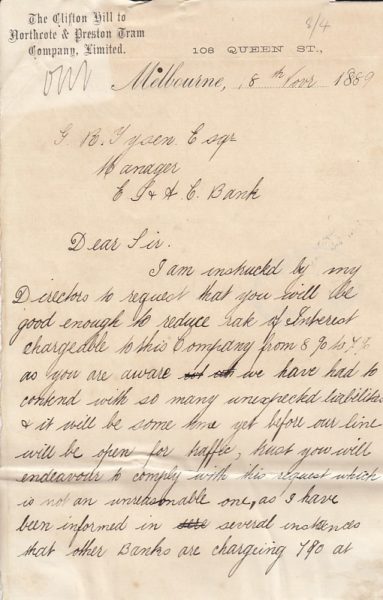 The Clifton Hill to
Northcote & Preston Tram
Company, Limited.
8/4
108 QUEEN ST.,
Melbourne, 8th Novr 1889
G. R. Tysen Esqr
Manager
E S & A C. Bank
Dear Sir.
I am instructed by my
Directors to request that you will be
good enough to reduce rate of Interest
chargeable to this Company from 8 % to 7 %
as you are aware we have had to
contend with so many unexpected liabilities
& it will be some time yet before our line
will be open for traffic, trust you will
endeavour to comply with this request which
is not an unreasonable one, as I have
been informed in several instances
that other Banks are chargeing 7 % at